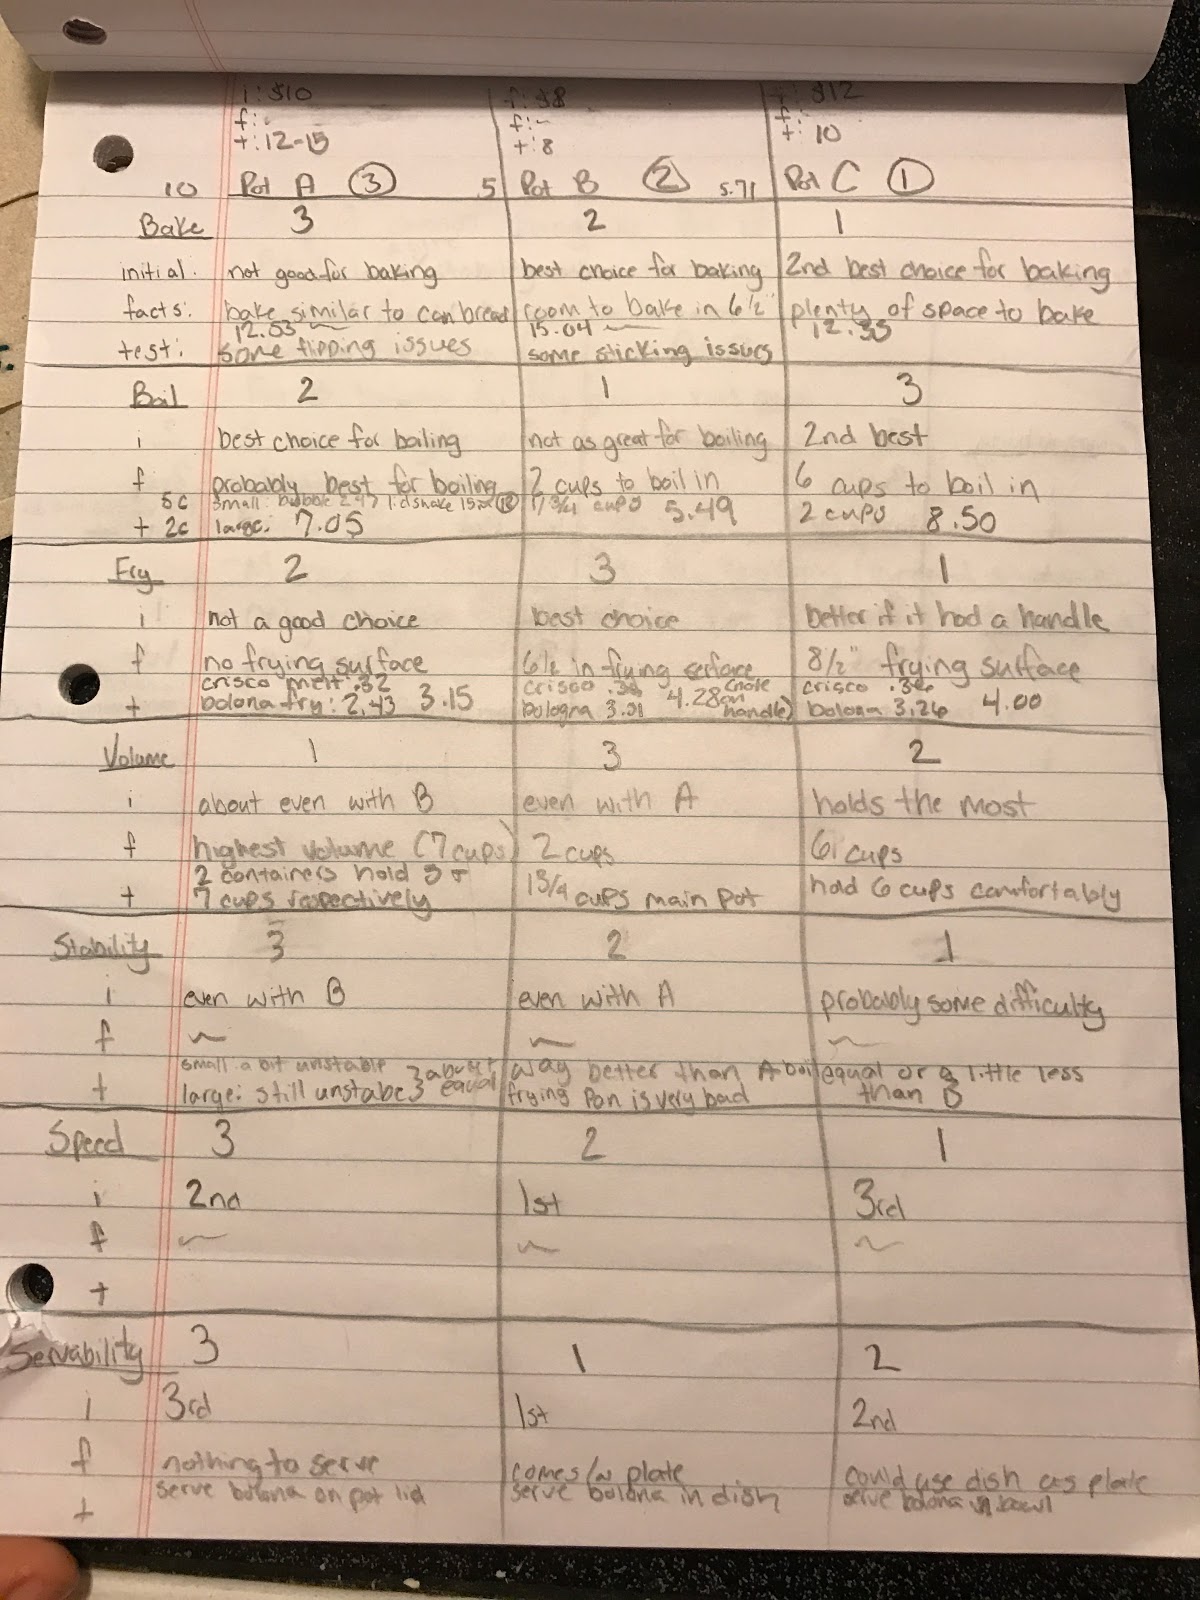 i: $10 f: $8 f: $12
f: - f: ~ f:
t: 12-15 t: 8 t: 10
10 Pot A 3 5 Pot B 2 5.71 Pot C 1
Bake 3 2 1
initial: not good for baking best choice for baking 2nd best choice for baking
facts: bake similar to can bread room to bake in 6½" plenty of space to bake
12.53 ~ 15.04 ~ 12.35
test: some flipping issues some sticking issues
Boil 2 1 3
i best choice for boiling not as great for boiling 2nd best
f probably best for boiling 2 cups to boil in 6 cups to boil in
5c small: bubble 2.47 lid shake
t 2c large: 7.05 1 3/4 cups 5.49 2 cups 8.50
Fry 2 3 1
i not a good choice best choice better if it had a handle
f no frying surface 6½ in frying serface 8½" frying surface
crisco melt .32 crisco crisco
t bolona fry: 2.43 3.15 bologna 3.51 4.28 (note on handle) bolona 3.26 4.00
Volume 1 3 2
i about even with B even with A holds the most
f highest volume (7 cups) 2 cups 6 cups
2 containers hold 5 +
t 7 cups respectively 1 3/4 cups main pot hold 6 cups comfortably
Stability 3 2 1
i even with B even with A probably some difficulty
f ~ ~ ~
small: a bit unstable } about way better than A boil equal or a little less
t large: still unstabe } equal frying pan is very bad than B
Speed 3 2 1
i 2nd 1st 3rd
f ~ ~ ~
t
Servability 3 1 2
i 3rd 1st 2nd
f nothing to serve comes /w plate could use dish as plate
t serve bolona on pot lid serve bolona in dish serve bolona in bowl